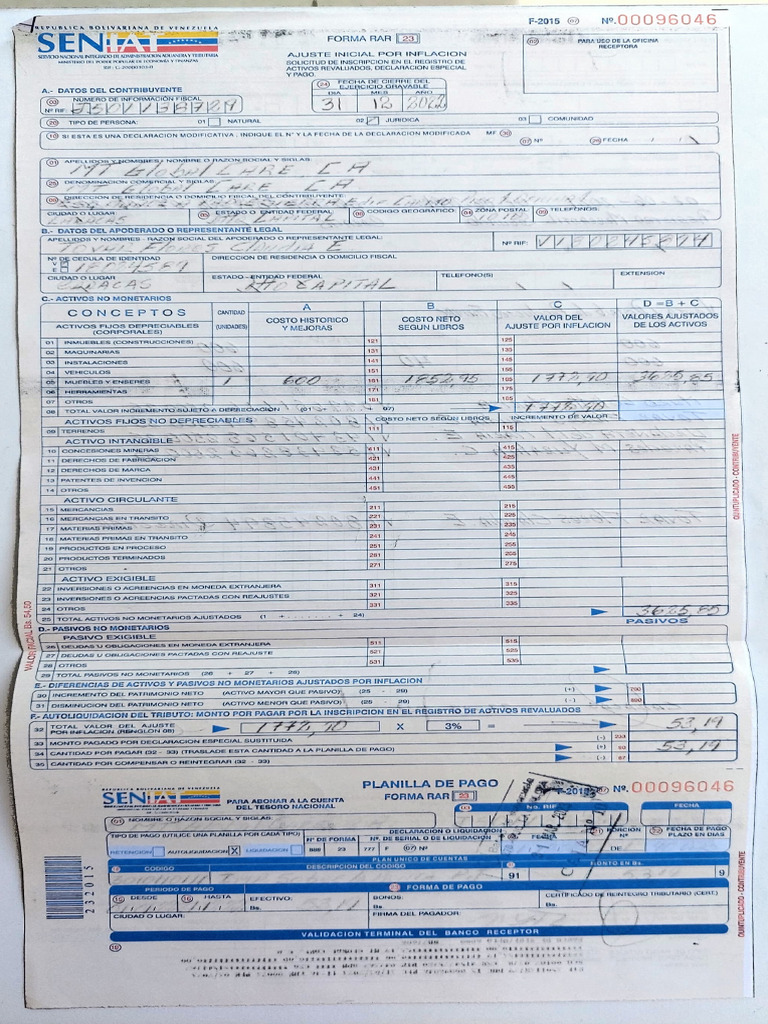 REPUBLICA BOLIVARIANA DE VENEZUELA
SENIAT
SERVICIO NACIONAL INTEGRADO DE ADMINISTRACION ADUANERA Y TRIBUTARIA
MINISTERIO DEL POPULAR DE ECONOMIA Y FINANZAS
FORMA RAR 23
F-2015 07 Nº.00096046
AJUSTE INICIAL POR INFLACION
SOLICITUD DE INSCRIPCION EN EL REGISTRO DE
ACTIVOS REVALUADOS, DECLARACION ESPECIAL
Y PAGO.
PARA USO DE LA OFICINA
RECEPTORA
A.- DATOS DEL CONTRIBUYENTE
NUMERO DE INFORMACION FISCAL
Nº RIF:
FECHA DE CIERRE DEL
EJERCICIO GRAVABLE
DIA MES AÑO
31 12 2022
TIPO DE PERSONA: 01 NATURAL 02 JURIDICA 03 COMUNIDAD
SI ESTA ES UNA DECLARACION MODIFICATIVA, INDIQUE EL Nº Y LA FECHA DE LA DECLARACION MODIFICADA MF Nº FECHA
APELLIDOS Y NOMBRES / NOMBRE O RAZON SOCIAL Y SIGLAS:
MT Global CARE CA
DENOMINACION COMERCIAL Y SIGLAS:
MT Global CARE CA
DIRECCION DE RESIDENCIA O DOMICILIO FISCAL DEL CONTRIBUYENTE:
CIUDAD O LUGAR ESTADO O ENTIDAD FEDERAL CODIGO GEOGRAFICO ZONA POSTAL TELEFONOS:
CARACAS
B.- DATOS DEL APODERADO O REPRESENTANTE LEGAL
APELLIDOS Y NOMBRES - RAZON SOCIAL DEL APODERADO O REPRESENTANTE LEGAL: Nº RIF:
Nº DE CEDULA DE IDENTIDAD DIRECCION DE RESIDENCIA O DOMICILIO FISCAL
CIUDAD O LUGAR ESTADO - ENTIDAD FEDERAL TELEFONO(S) EXTENSION
CARACAS DTTO CAPITAL
C.- ACTIVOS NO MONETARIOS
CONCEPTOS CANTIDAD A B C D = B + C
ACTIVOS FIJOS DEPRECIABLES (UNIDADES) COSTO HISTORICO COSTO NETO VALOR DEL VALORES AJUSTADOS
(CORPORALES) Y MEJORAS SEGUN LIBROS AJUSTE POR INFLACION DE LOS ACTIVOS
01 INMUEBLES (CONSTRUCCIONES) 121 125
02 MAQUINARIAS 131 135
03 INSTALACIONES 141 145
04 VEHICULOS 151 155
05 MUEBLES Y ENSERES 1 600 161 1852,95 165 1772,90 3625,85
06 HERRAMIENTAS 171 175
07 OTROS
08 TOTAL VALOR INCREMENTO SUJETO A DEPRECIACION (01 + 07) 1772,90
ACTIVOS FIJOS NO DEPRECIABLES COSTO NETO SEGUN LIBROS INCREMENTO DE VALOR
09 TERRENOS 111 115
ACTIVO INTANGIBLE
10 CONCESIONES MINERAS 411 415
11 DERECHOS DE FABRICACION 421 425
12 DERECHOS DE MARCA 431 435
13 PATENTES DE INVENCION 441 445
14 OTROS 451 455
ACTIVO CIRCULANTE
15 MERCANCIAS 211 215
16 MERCANCIAS EN TRANSITO 221 225
17 MATERIAS PRIMAS 231 235
18 MATERIAS PRIMAS EN TRANSITO 241 245
19 PRODUCTOS EN PROCESO 251 255
20 PRODUCTOS TERMINADOS 261 265
21 OTROS 271 275
ACTIVO EXIGIBLE
22 INVERSIONES O ACREENCIAS EN MONEDA EXTRANJERA 311 315
23 INVERSIONES O ACREENCIAS PACTADAS CON REAJUSTES 321 325
24 OTROS 331 335
25 TOTAL ACTIVOS NO MONETARIOS AJUSTADOS (1 + ........... + 24) 3625,85
D.- PASIVOS NO MONETARIOS PASIVOS
PASIVO EXIGIBLE
26 DEUDAS U OBLIGACIONES EN MONEDA EXTRANJERA 511 515
27 DEUDAS U OBLIGACIONES PACTADAS CON REAJUSTE 521 525
28 OTROS 531 535
29 TOTAL PASIVOS NO MONETARIOS (26 + 27 + 28)
E.- DIFERENCIAS DE ACTIVOS Y PASIVOS NO MONETARIOS AJUSTADOS POR INFLACION
30 INCREMENTO DEL PATRIMONIO NETO (ACTIVO MAYOR QUE PASIVO) (25 - 29) (+)
31 DISMINUCION DEL PATRIMONIO NETO (ACTIVO MENOR QUE PASIVO) (25 - 29) (-)
F.- AUTOLIQUIDACION DEL TRIBUTO: MONTO POR PAGAR POR LA INSCRIPCION EN EL REGISTRO DE ACTIVOS REVALUADOS
32 TOTAL VALOR DEL AJUSTE POR INFLACION (RENGLON 08) 1772,90 X 3% = 53,19
33 MONTO PAGADO POR DECLARACION ESPECIAL SUSTITUIDA (-)
34 CANTIDAD POR PAGAR (32 - 33) (TRASLADE ESTA CANTIDAD A LA PLANILLA DE PAGO) (+) 90 53,19
35 CANTIDAD POR COMPENSAR O REINTEGRAR (32 - 33) (-)
VALOR FACIAL Bs. 54,50
QUINTUPLICADO - CONTRIBUYENTE
REPUBLICA BOLIVARIANA DE VENEZUELA
SENIAT
PARA ABONAR A LA CUENTA
DEL TESORO NACIONAL
PLANILLA DE PAGO
FORMA RAR 23
F-2015 Nº.00096046
Nº. RIF: FECHA
NOMBRE O RAZON SOCIAL Y SIGLAS:
TIPO DE PAGO (UTILICE UNA PLANILLA POR CADA TIPO)
RETENCION AUTOLIQUIDACION X LIQUIDACION
Nº DE FORMA DECLARACION O LIQUIDACION
Nº DE SERIAL O DE LIQUIDACION
23 777 F Nº DE
PORCION Nº
FECHA DE PAGO
PLAZO EN DIAS
PLAN UNICO DE CUENTAS
CODIGO DESCRIPCION DEL CODIGO 91 MONTO EN Bs. 9
PERIODO DE PAGO FORMA DE PAGO
DESDE HASTA EFECTIVO: Bs. BONOS: Bs. CERTIFICADO DE REINTEGRO TRIBUTARIO (CERT.)
CIUDAD O LUGAR: FIRMA DEL PAGADOR:
VALIDACION TERMINAL DEL BANCO RECEPTOR
232015
QUINTUPLICADO - CONTRIBUYENTE